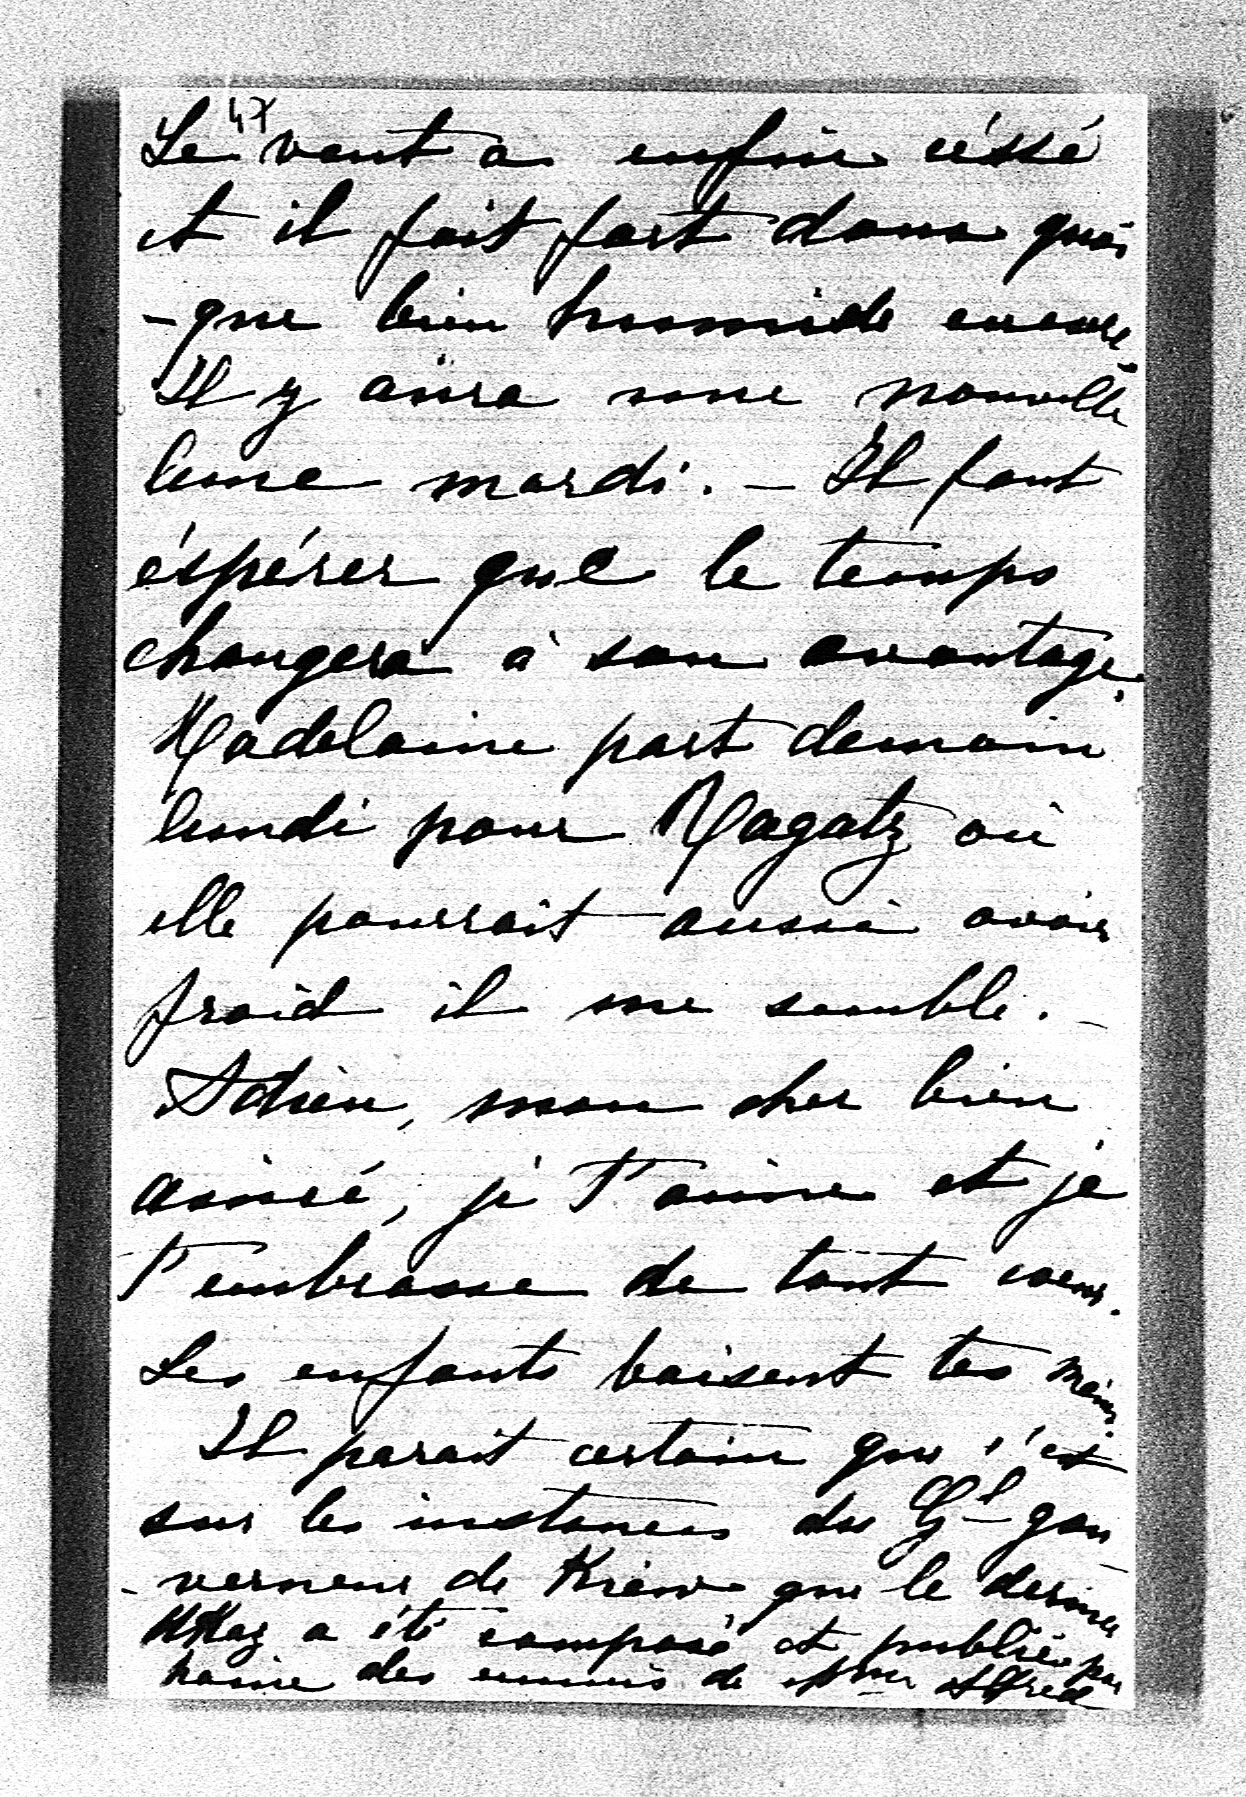 47
Le vent a enfin céssé
et il fait fort doux quoi
-que bien humide encore.
Il y aura une nouvelle
lune mardi. – Il faut
éspérer que le temps
changera à son avantage.
Madelaine part demain
lundi pour Ragatz où
elle pourrait aussi avoir
froid il me semble. –
Adieu, mon cher bien
aimé, je t'aime et je
t'embrasse de tout coeur.
Les enfants baisent tes mains.
Il parait certain que c'est
sur les instances du Gl gou
-verneur de Kiew que le dernier
Ukaz a été composé et publié par
haine des ennuis de Mme Alfred